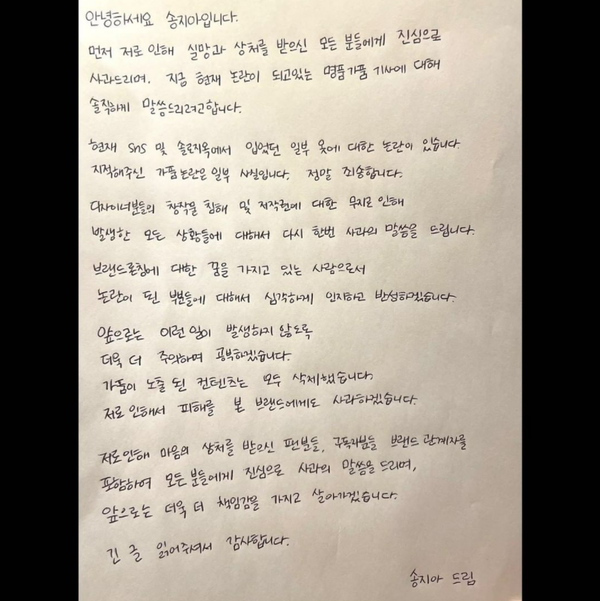 안녕하세요 송지아입니다.
먼저 저로 인해 실망과 상처를 받으신 모든 분들에게 진심으로
사과드리며, 지금 현재 논란이 되고있는 명품가품 기사에 대해
솔직하게 말씀드리려고합니다.
현재 sns 및 솔로지옥에서 입었던 일부 옷에 대한 논란이 있습니다
지적해주신 가품논란은 일부 사실입니다. 정말 죄송합니다.
디자이너분들의 창작물 침해 및 저작권에 대한 무지로 인해
발생한 모든 상황들에 대해서 다시 한번 사과의 말씀을 드립니다.
브랜드론칭에 대한 꿈을 가지고 있는 사람으로서
논란이 된 부분들에 대해서 심각하게 인지하고 반성하겠습니다.
앞으로는 이런 일이 발생하지 않도록
더욱 더 주의하며 공부하겠습니다.
가품이 노출 된 컨텐츠는 모두 삭제했습니다.
저로 인해서 피해를 본 브랜드에게도 사과하겠습니다.
저로인해 마음의 상처를 받으신 팬분들, 구독자분들 브랜드 관계자를
포함하여 모든분들에게 진심으로 사과의 말씀을 드리며,
앞으로는 더욱 더 책임감을 가지고 살아가겠습니다.
긴 글 읽어주셔서 감사합니다.
송지아 드림